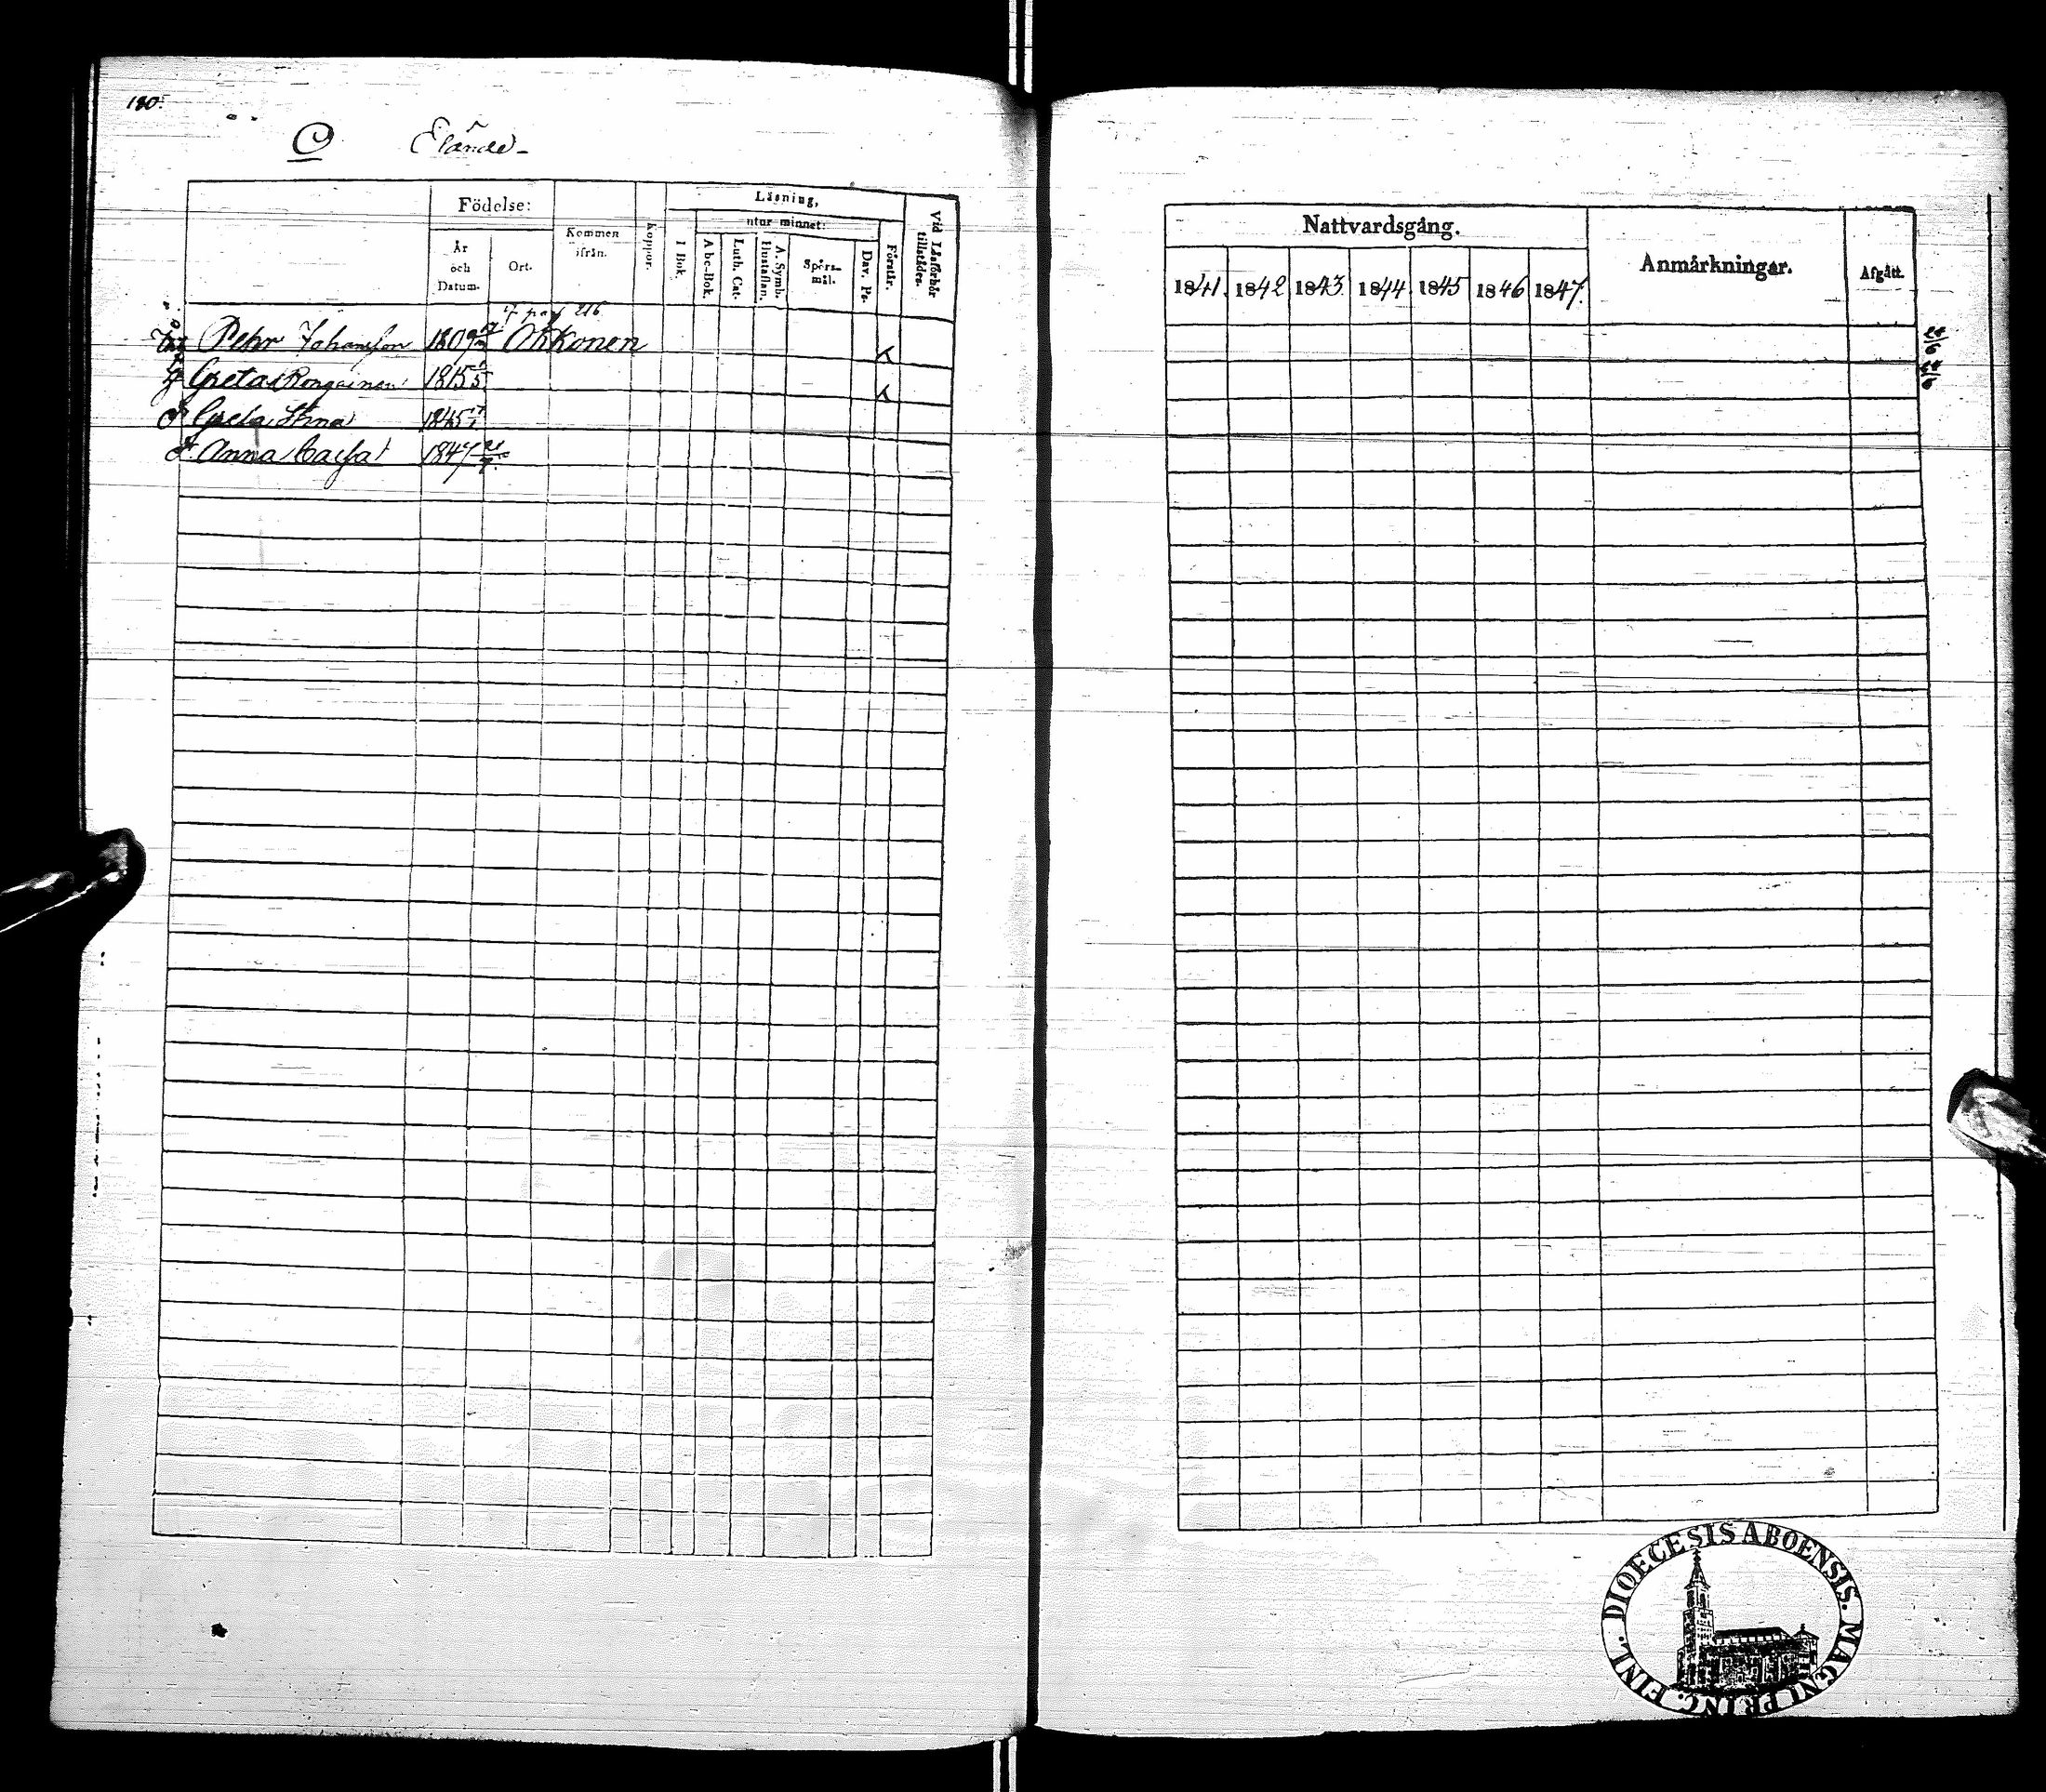 180.
C Elände
Födelse:
År och Datum.
Ort.
Kommen ifrån.
Koppor.
Läsning,
I Bok.
utur minnet:
Abc-Bok.
Luth. Cat.
A. Symb. Hustaflan.
Spörsmål.
Dav. Ps.
Förstår.
Vid Läsförhör tillstädes.
pag 216
Pehr Johansson 1809 Okkonen
Greta Rongainen 1815
Greta Stina 1845
Anna Caisa 1847
Nattvardsgång.
1841. 1842 1843. 1844. 1845 1846 1847.
Anmärkningar.
Afgått.
DIOECESIS ABOENSIS. MAGNI PRINC. FINL.